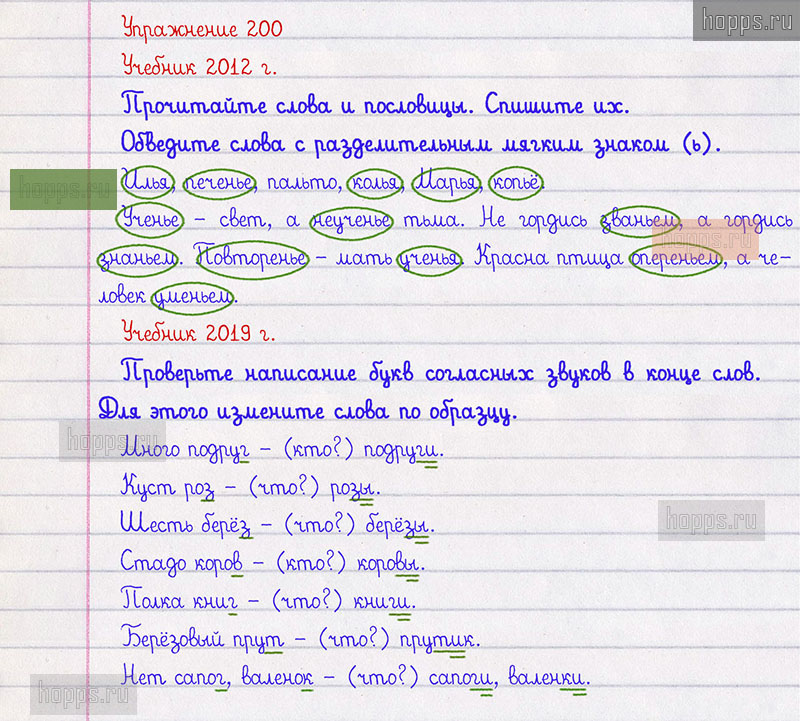 hopps.ru
Упражнение 200
Учебник 2012 г.
Прочитайте слова и пословицы. Спишите их.
Обведите слова с разделительным мягким знаком (ь).
hopps.ru
Илья, печенье, пальто, колья, Марья, копьё.
Ученье – свет, а неученье тьма. Не гордись званьем, а гордись
hopps.ru
знаньем. Повторенье – мать ученья. Красна птица опереньем, а че-
ловек уменьем.
Учебник 2019 г.
Проверьте написание букв согласных звуков в конце слов.
Для этого измените слова по образцу.
hopps.ru
Много подруг – (кто?) подруги.
Куст роз – (что?) розы.
hopps.ru
Шесть берёз – (что?) берёзы.
Стадо коров – (кто?) коровы.
Полка книг – (что?) книги.
Берёзовый прут – (что?) прутик.
Нет сапог, валенок – (что?) сапоги, валенки.
hopps.ru